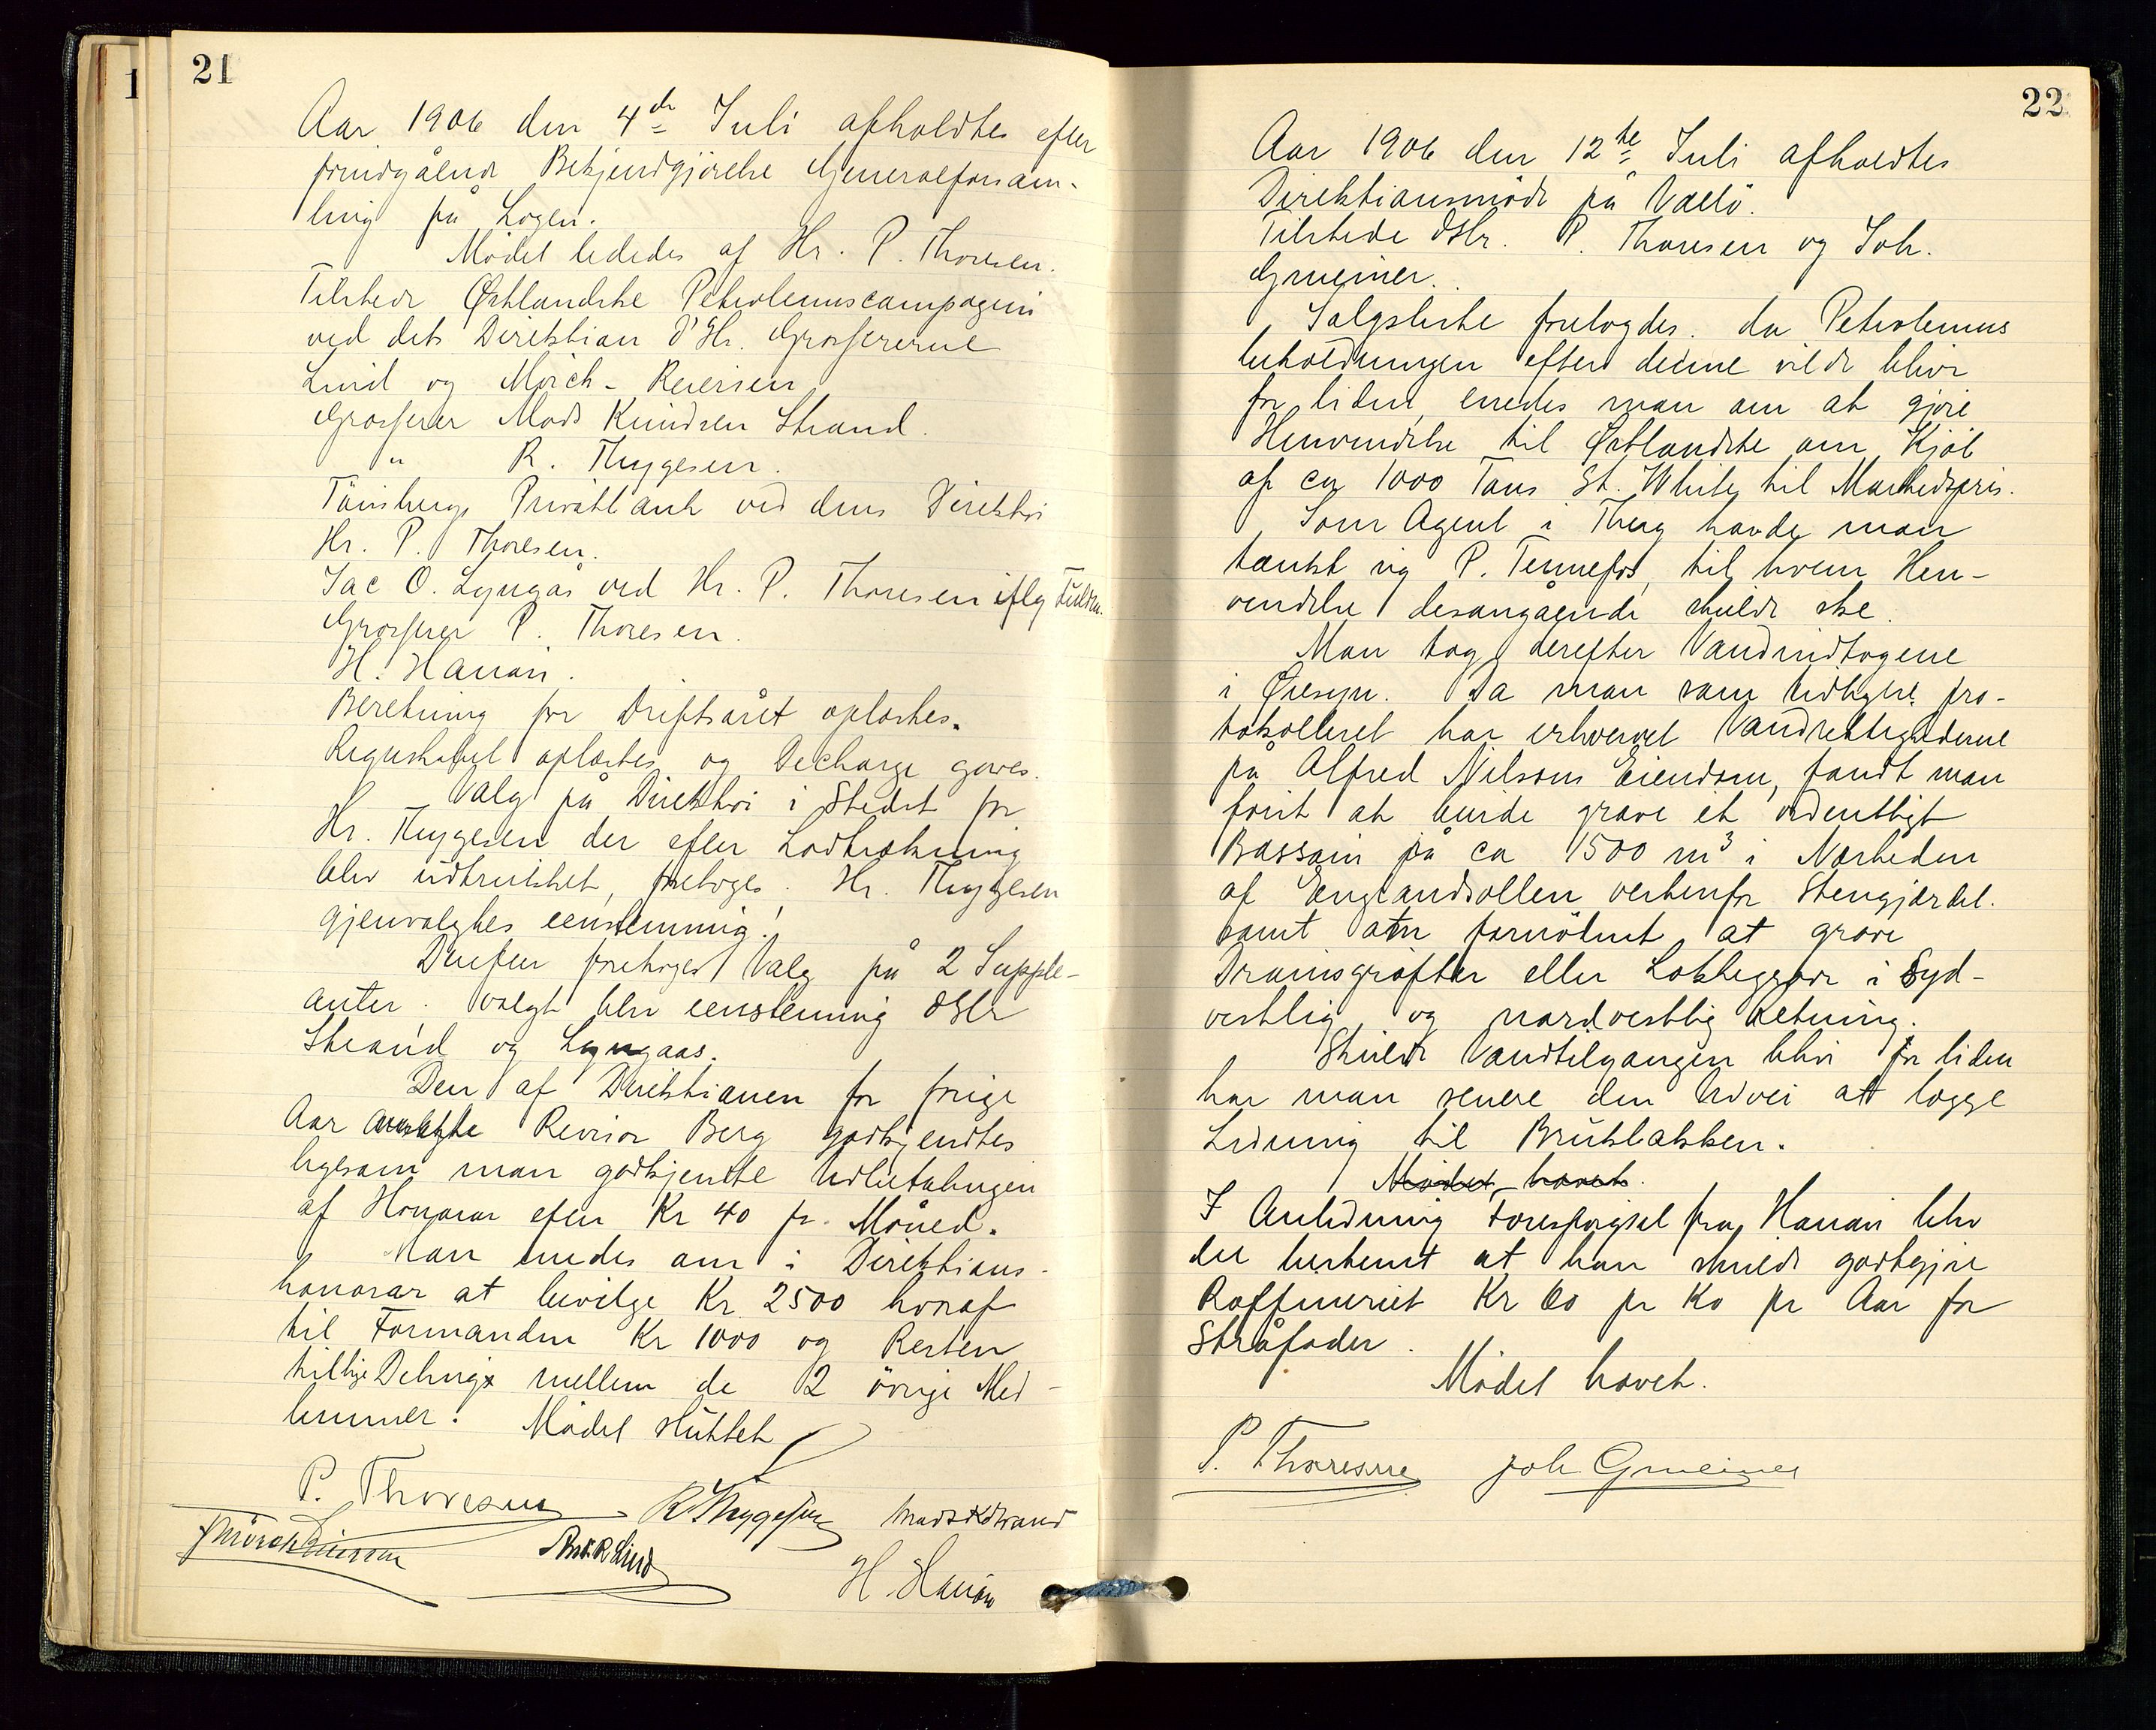 21
Aar 1906 den 4de Juli afholdtes efter
forudgående Bekjendtgjörelse Generalforsam-
ling på Logen.
Mödet lededes af Hr. P. Thoresen.
Tilstede Østlandske Petroleumscompagni
ved dets Direktion D'Hr. Grossererne
Lind og Mörch-Reiersen
Grosserer Mads Knudsen Strand.
" R. Thygesen.
Tönsbergs Privatbank ved dens Direktör
Hr. P. Thoresen.
Jac O. Lyngås ved Hr. P. Thoresen iflg Fuldm.
Grosserer P. Thoresen.
H. Hanân.
Beretning for Driftsåret oplæstes.
Regnskabet oplæstes og Decharge gaves.
Valg på Direktör i Stedet for
Hr. Thygesen der efter Lodtrækning
blev udtrukket, foretoges. Hr. Thygesen
gjenvalgtes eenstemmig.
Derefter foretoges Valg på 2 Supple-
anter. Valgt blev eenstemmig DHr
Strand og Lyngaas.
Den af Direktionen for forige
Aar ansatte Revisor Berg godkjendtes
ligesom man godkjendte Udbetalingen
af Honorar efter Kr 40 pr. Måned.
Man enedes om i Direktions-
honorar at bevilge Kr 2500 hvoraf
til Formanden Kr 1000 og Resten
til lige Deling mellem de 2 övrige Med-
lemmer. Mödet sluttet
P. Thoresen R Thygesen Mads K Strand
J Mörch Reiersen Ansk. R Lind
H. Hanân
22
Aar 1906 den 12te Juli afholdtes
Direktionsmöde på Vallö.
Tilstede DHr. P. Thoresen og Joh.
Gmeiner.
Salgsliste forelagdes. da Petroleums
beholdningen efter denne vilde blive
for liden, enedes man om at gjöre
Henvendelse til Østlandske om Kjöb
af ca 1000 Tons St. White til Markedspris.
Som Agent i Tbrg havde man
tænkt sig P. Tennefos, til hvem Hen-
vendelse desangående skulde ske.
Man tog derefter Vandindtagene
i Øiesyn. Da man som tidligere pro-
tokolleret har erhvervet Vandrettighederne
på Alfred Nilsens Eiendom, fandt man
först at burde grave et ordentligt
Bassain på ca 1500 m3 i Nærheden
af Englandsollen vestenfor Stengjærdet.
samt om fornödent at grave
Drainsgröfter eller Lokkegrave i Syd-
vestlig og nordvestlig Retning.
Skulde Vandtilgangen blive for liden
har man senere den Udvei att lægge
Ledning til Brukbakken.
Mödet hævet.
I Anledning Forespörgsel fra Hanân blev
det bestemt at han skulde godtgjöre
Raffineriet Kr 60 pr Ko pr Aar for
Stråfoder.
Mödet hævet.
P. Thoresen Joh. Gmeiner